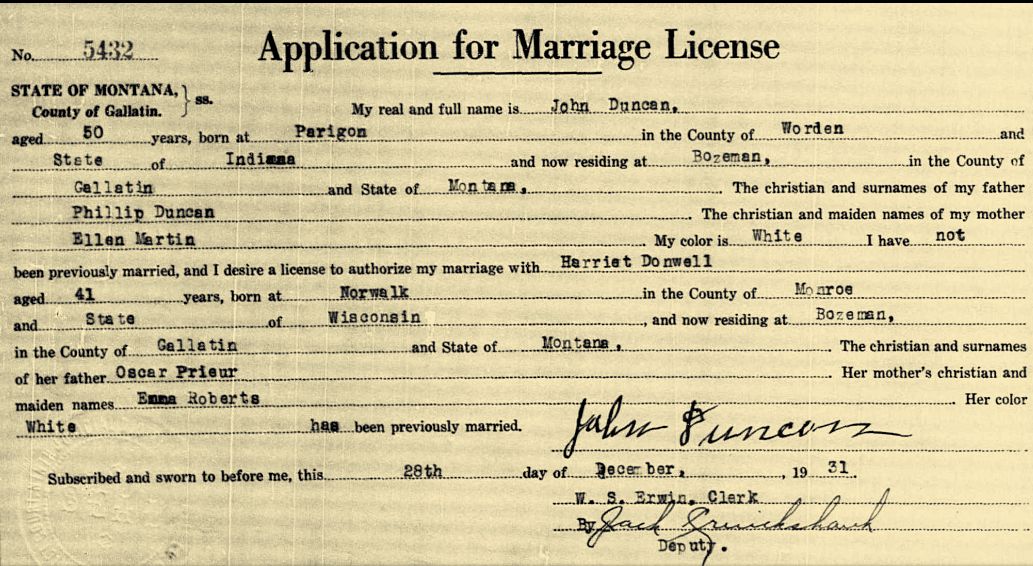 Application for Marriage License
No. 5432
STATE OF MONTANA,
County of Gallatin. } ss.
My real and full name is John Duncan,
aged 50 years, born at Parigon in the County of Worden and
State of Indiana and now residing at Bozeman, in the County of
Gallatin and State of Montana, The christian and surnames of my father
Phillip Duncan The christian and maiden names of my mother
Ellen Martin My color is White I have not
been previously married, and I desire a license to authorize my marriage with Harriet Donwell
aged 41 years, born at Norwalk in the County of Monroe
and State of Wisconsin , and now residing at Bozeman,
in the County of Gallatin and State of Montana, The christian and surnames
of her father Oscar Prieur Her mother's christian and
maiden names Emma Roberts Her color
White has been previously married.
John Duncan
Subscribed and sworn to before me, this 28th day of December, , 19 31.
W. S. Erwin, Clerk
By Jack
Deputy.